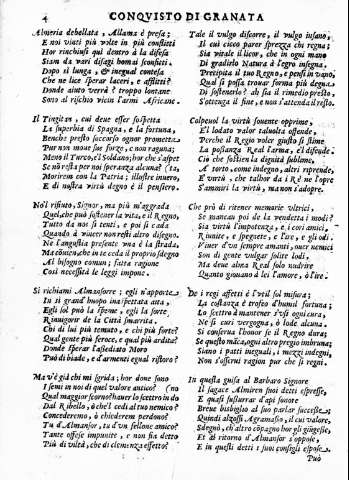 4 CONQVISTO DI GRANATA
Almeria debellata, Allama è presa;
E noi vinti più volte in più conflitti
Hor rinchiusi quì dentro à la difesa
Siam da varj disagi homai sconfitti.
Dopo sì lunga, & inegual contesa
Che ne lice sperar laceri, e afflitti?
Donde aiuto verrà? troppo lontane
Sono al rischio vicin l'armi Africane.
Il Tingitan, cui deue esser sospetta
La superbia di Spagna, e la fortuna,
Benche presto soccorso ognor prometta
Pur non moue sue forze, e non raguna;
Meno il Turco, e'l Soldano; hor che s'aspet
Se nõ resta per noi speranza alcuna?
Moriren con la Patria; illustre inuero,
E di nostra virtù degno è il pensiero.
Nol rifiuto, Signor, ma più m'aggrada
Quel, che può sostener la vita, e il Regno,
Tutto dà noi si tenti, e poi si cada
Quando à vincer non resti altro disegno
Ne l'angustie presenti vna è la strada,
Al bisogno comun; fatta ragione
Così necessità le leggi impone.
Si richiami Almansorre; egli n'apporte
In sì grand'huopo inaspettata aita,
Egli sol può la speme, e egli la forte
Rinuigorir de la Città smarrita.
Chi di lui più temuto, e chi più forte?
Qual gente più feroce, e qual più ardita?
Donde sperar l'assediato Moro
Può di biade, e d'armenti egual ristoro?
Ma v'è già chi mi sgrida; hor doue sono
I semi in noi di quel valore antico?
Qual maggior scorno? hauer lo scettro in do
Dal Ribello, ò che'l ceda al tuo nemico?
Concederemo, ò chiederem perdono?
Tu d'Almansor, tu d'un fellone amico?
Tante offese impunite, e non sia detto
Più di viltà, che di clemenza effetto?
Tale il vulgo discorre, il vulgo insano,
Il cui cieco parer sprezza chi regna;
Sia virtute il licor, che in ogni mano
Di gradirlo Natura à l'egro insegna,
Precipita il tuo Regno, e pensi in vano,
Qual si possa trouar forma più degna
Di sostenerlo? ah sia il rimedio presto,
S'ottenga il fine, e non s'attenda il resto.
Colpeuol la virtù souente opprime,
E'l lodato valor taluolta offende,
Perche il Regio voler giusto si stime
La possanza Real l'arma, e'l difende
Ciò che sostien la dignità sublime,
A torto, come indegno, altri riprende,
E virtù, che talhor da i Rè ne sopre
S'ammorti la virtù, ma non s'adopre.
Che prò di ritener memorie vltrici,
Se mancan poi de la vendetta i modi?
Sia virtù l'impotenza, e i cori amici
Riunite, e spegnete, e l'ire, e gli odi.
Viuer d'un sempre amanti, ouer nemici
Son di gente vulgar solite lodi.
Ma deue alma Real solo nudrire
Quanto giouano à lei l'amore, ò l'ire.
De i regi affetti è l'vtil sol misura;
La costanza è trofeo d'humil fortuna;
Lo scettro à mantener s'vsi ogni cura,
Ne si curi vergogna, ò lode alcuna.
Si conserui l'honor se il Regno dura;
Se questo mãca, ogni altro pregio imbruna;
Siano i patti ineguali, i mezzi indegni,
Non s'osserui ragion pur che si regni.
In questa guisa al Barbaro Signore
Il sagace Almiren suoi detti espresse,
E quasi susurrar d'api sonore
Breue bisbiglio al suo parlar successe;
Quindi alzossi Agramasso, il cui valore,
Sdegnò, ch'altro cõpagno hor gli giugesse,
Et di ritorno d'Almansor s'oppose,
E in questi detti i suoi consegli espose.
Può